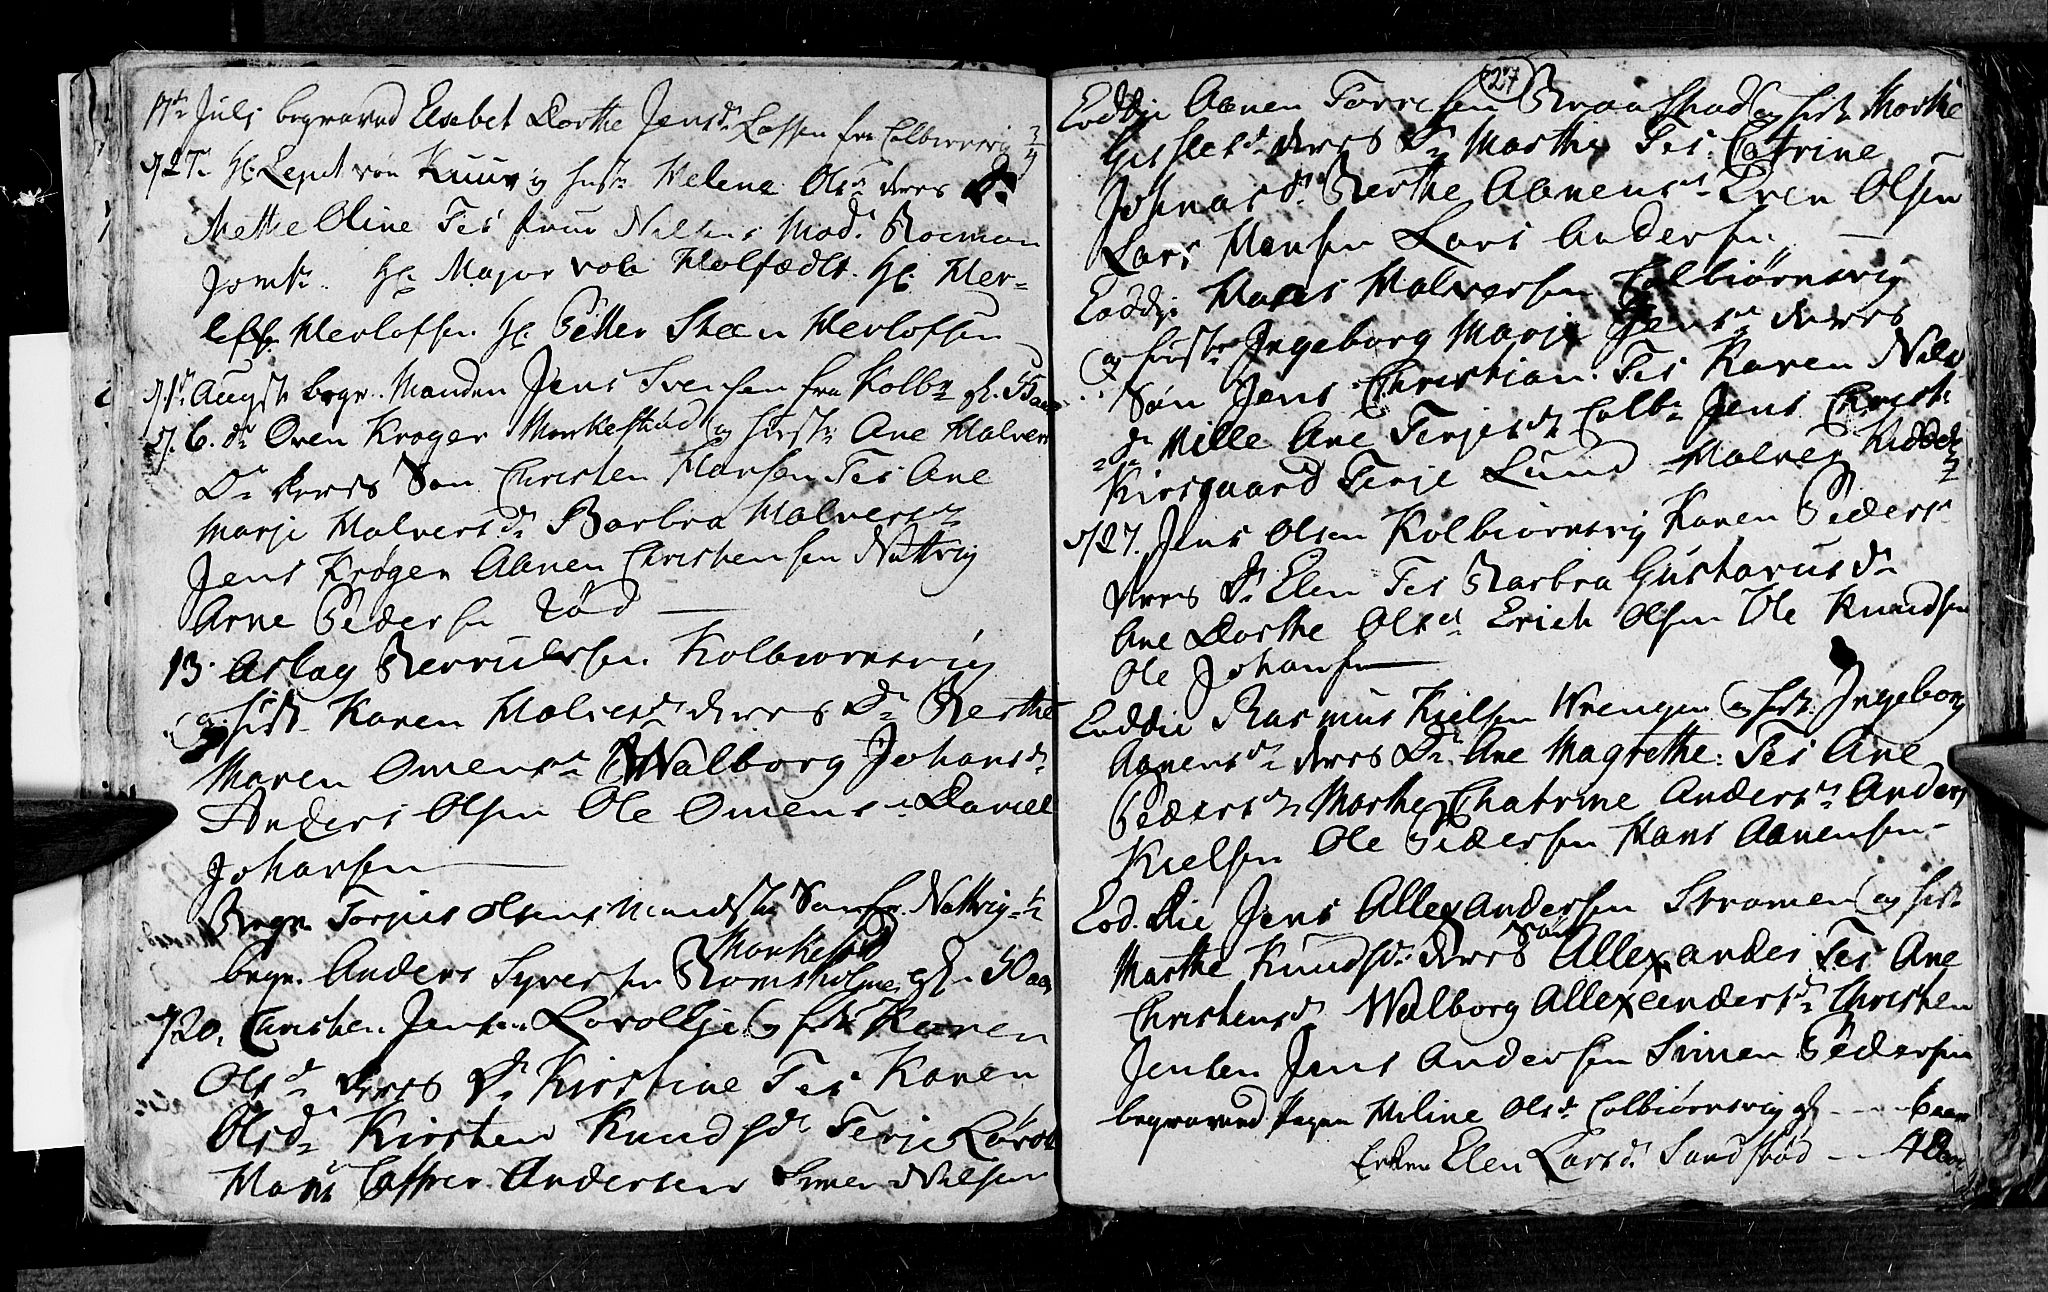 17de Julj begraved Elsebet Dorthe Jensdr Lassen fra Colbiornsvig 3/4
d 27. Hr: Leynt von Kuur og hustr Helena Olsdr deres Dr
Mette Oline Tes fruu Nilsens Mad. Boeman
Jomfr. Hr Major von Holfædt. Hr. Her-
leff Herlofsen Hr Petter Steen Herlofsen
d. 1de August begr. Manden Jens Svensen fra Kolb
d. 6. Oven Krøger Morkestad og hustr Ane Halvers
Dr deres Søn Christen Hansen Tes Ane
Marje Halversdr Barbra Halversdr
Jens Krøger Aanen Christensen Nattvig
Arne Pedersen Rød
13. Aslag Berrulfsen Kolbiornsvig
og hust Karen Halversdr deres Dr Berthe
Maren Omensdr Walborg Johansdr
Anders Olsen Ole Omens Daniel
Johansen
Begr Torjus Olsens Søn fra Nattvig 1/2
Morkestad
begr. Anders Syversen Romsholmen gl. 50 aar
d 20. Christen Jensen Lovold Eje og hustr Karen
Olsdr deres Dr Kirstine Tes Karen
Olsdr Kirsten Knudsdr Terje Løvold
Hans Casper Andersen Simen Nilsen
27
Eoddie Aanen Torresen Braastad og hustr Marthe
Gislesdr deres Dr Marthe Tes. Catrine
Josnasdr Berthe Aanensdr Even Olsen
Lars Hansen Lars Andersen
Eoddie Hans Halversen Colbiørnsvig
og hustr Ingeborg Marje Jensdr deres
Søn Jens Christian. Tes Karen Nils
dr Mille Ane Terjesdr Colb Jens Christ:
Kirsgaard Terje Lund Halver
d 27. Jens Olsen Kolbiornsvig Karen Peders
deres Dr Elen Tes Barbra Gustavusdr
Ane Dorthe Olsdr Erich Olsen Ole Knudsen
Ole Johansen
Eoddie Rasmus Kielsen Wrengen og hustr. Ingeborg
Aanensdr deres Dr Ane Magrethe: Tes Ane
Pedersdr Marthe Chatrine Andersdr Anders
Kielsen Ole Pedersen Hans Aanensen
Eod. Die Jens Allexandersen Strømen og hust
Marthe Knudsdr deres Søn Allexander Tes Ane
Christensdr Walborg Allexandersdr Christen
Jensen Jens Andersen Simen Pedersen
begraved Pigen Heline Olsdr Colbiørnsvig gl - - - 6 aar
Enken Elen Larsdr Sandstød - - 40 aar